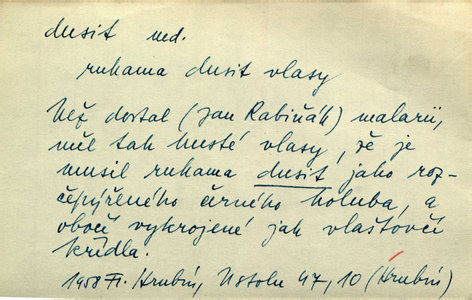 dusit ned.
rukama dusit vlasy
Než dostal (Jan Rabiňák) malarii,
měl tak husté vlasy, že je
musil rukama dusit jako roz-
čepýřeného černého holuba, a
obočí vykrojené jak vlaštovčí
křídla.
1958 Fr. Hrubín, U stolu 47, 10 (Hrubín)